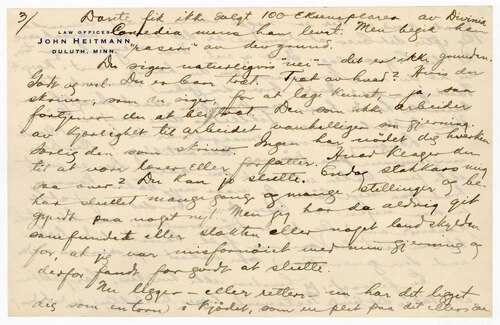 3/
LAW OFFICES
JOHN HEITMANN
DULUTH, MINN.
Dante fik ikke solgt 100 Eksemplarer av Divina
Comedia mens han levet. Men begik han
"raseri" av den grund.
Du siger naturligvis "nei" – det er ikke grunden.
Godt og vel. Du er bare træt. Træt av hvad? Hvis du
skriver, som du siger, for at lage kunst – ja, saa
fortjener du at bli træt. Den som ikke arbeider
av kjærlighet til arbeidet vanhelliger sin gjerning.
Ingen har nødet dig hverken
til at være lærer eller forfatter. Hvad klager du
saa over? Du kan jo slutte. Endog stakkars mig
har sluttet mange gange og mange stillinger og be-
gyndt paa noget nyt. Men jeg har da aldrig git
samfundet eller slekten eller noget land skylden
for, at jeg var misfornøiet med min gjerning og
derfor fandt for godt at slutte.
Nu ligger – eller rettere – nu har det ligget
dig som en torn i kjødet, som en plet paa dit ellers saa